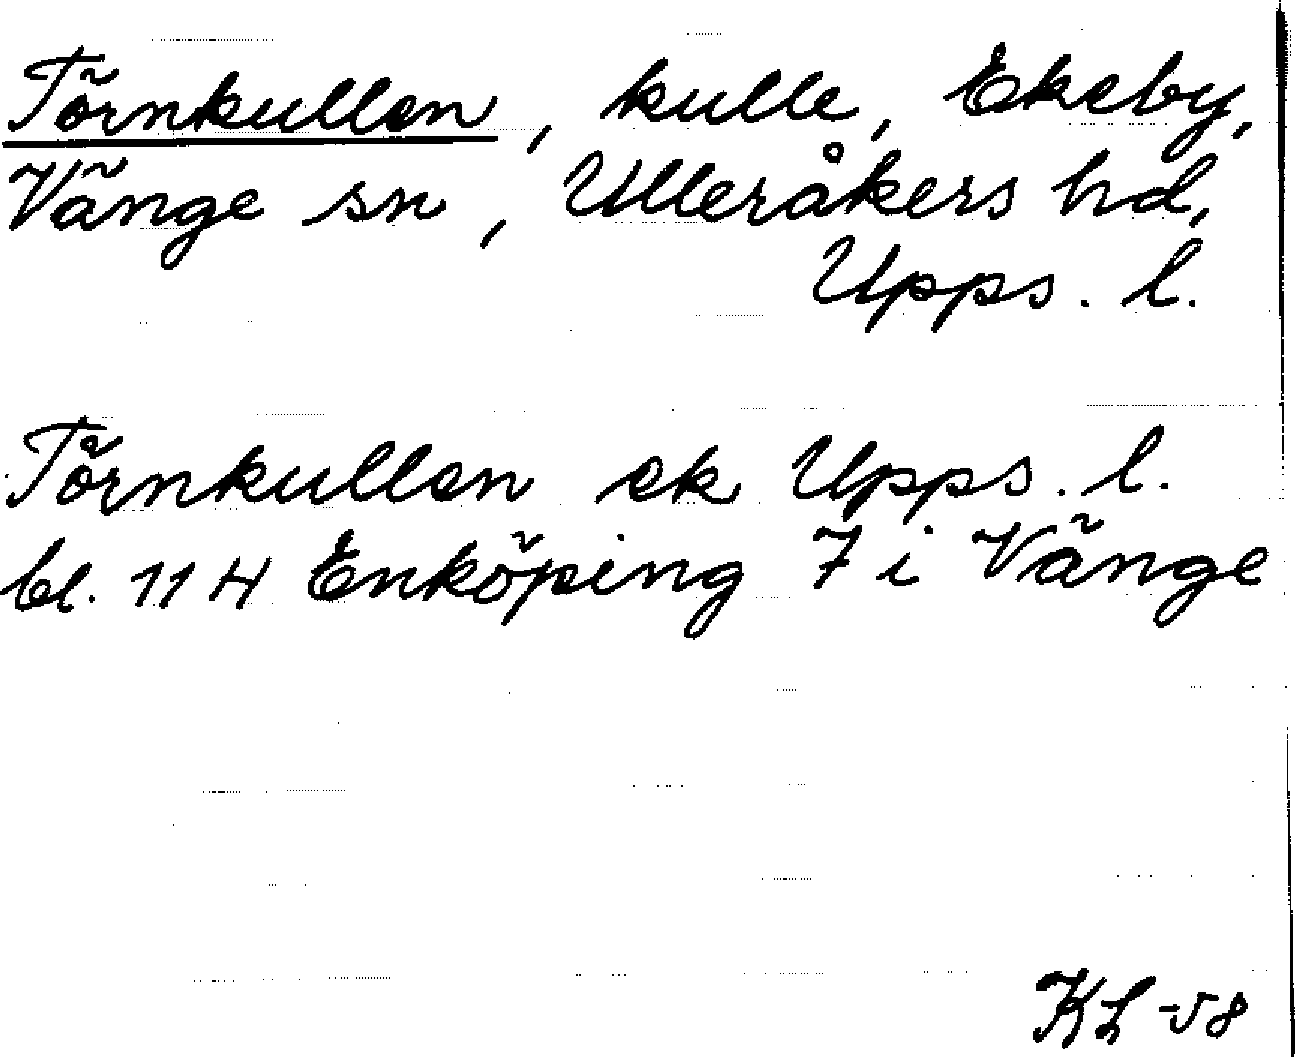 Törnkullen, kulle, Ekeby,
Vänge sn, Ulleråkers hd,
Upps. l.
Törnkullen ek Upps. l.
bl. 114 Enköping 7 i Vänge
KL -58